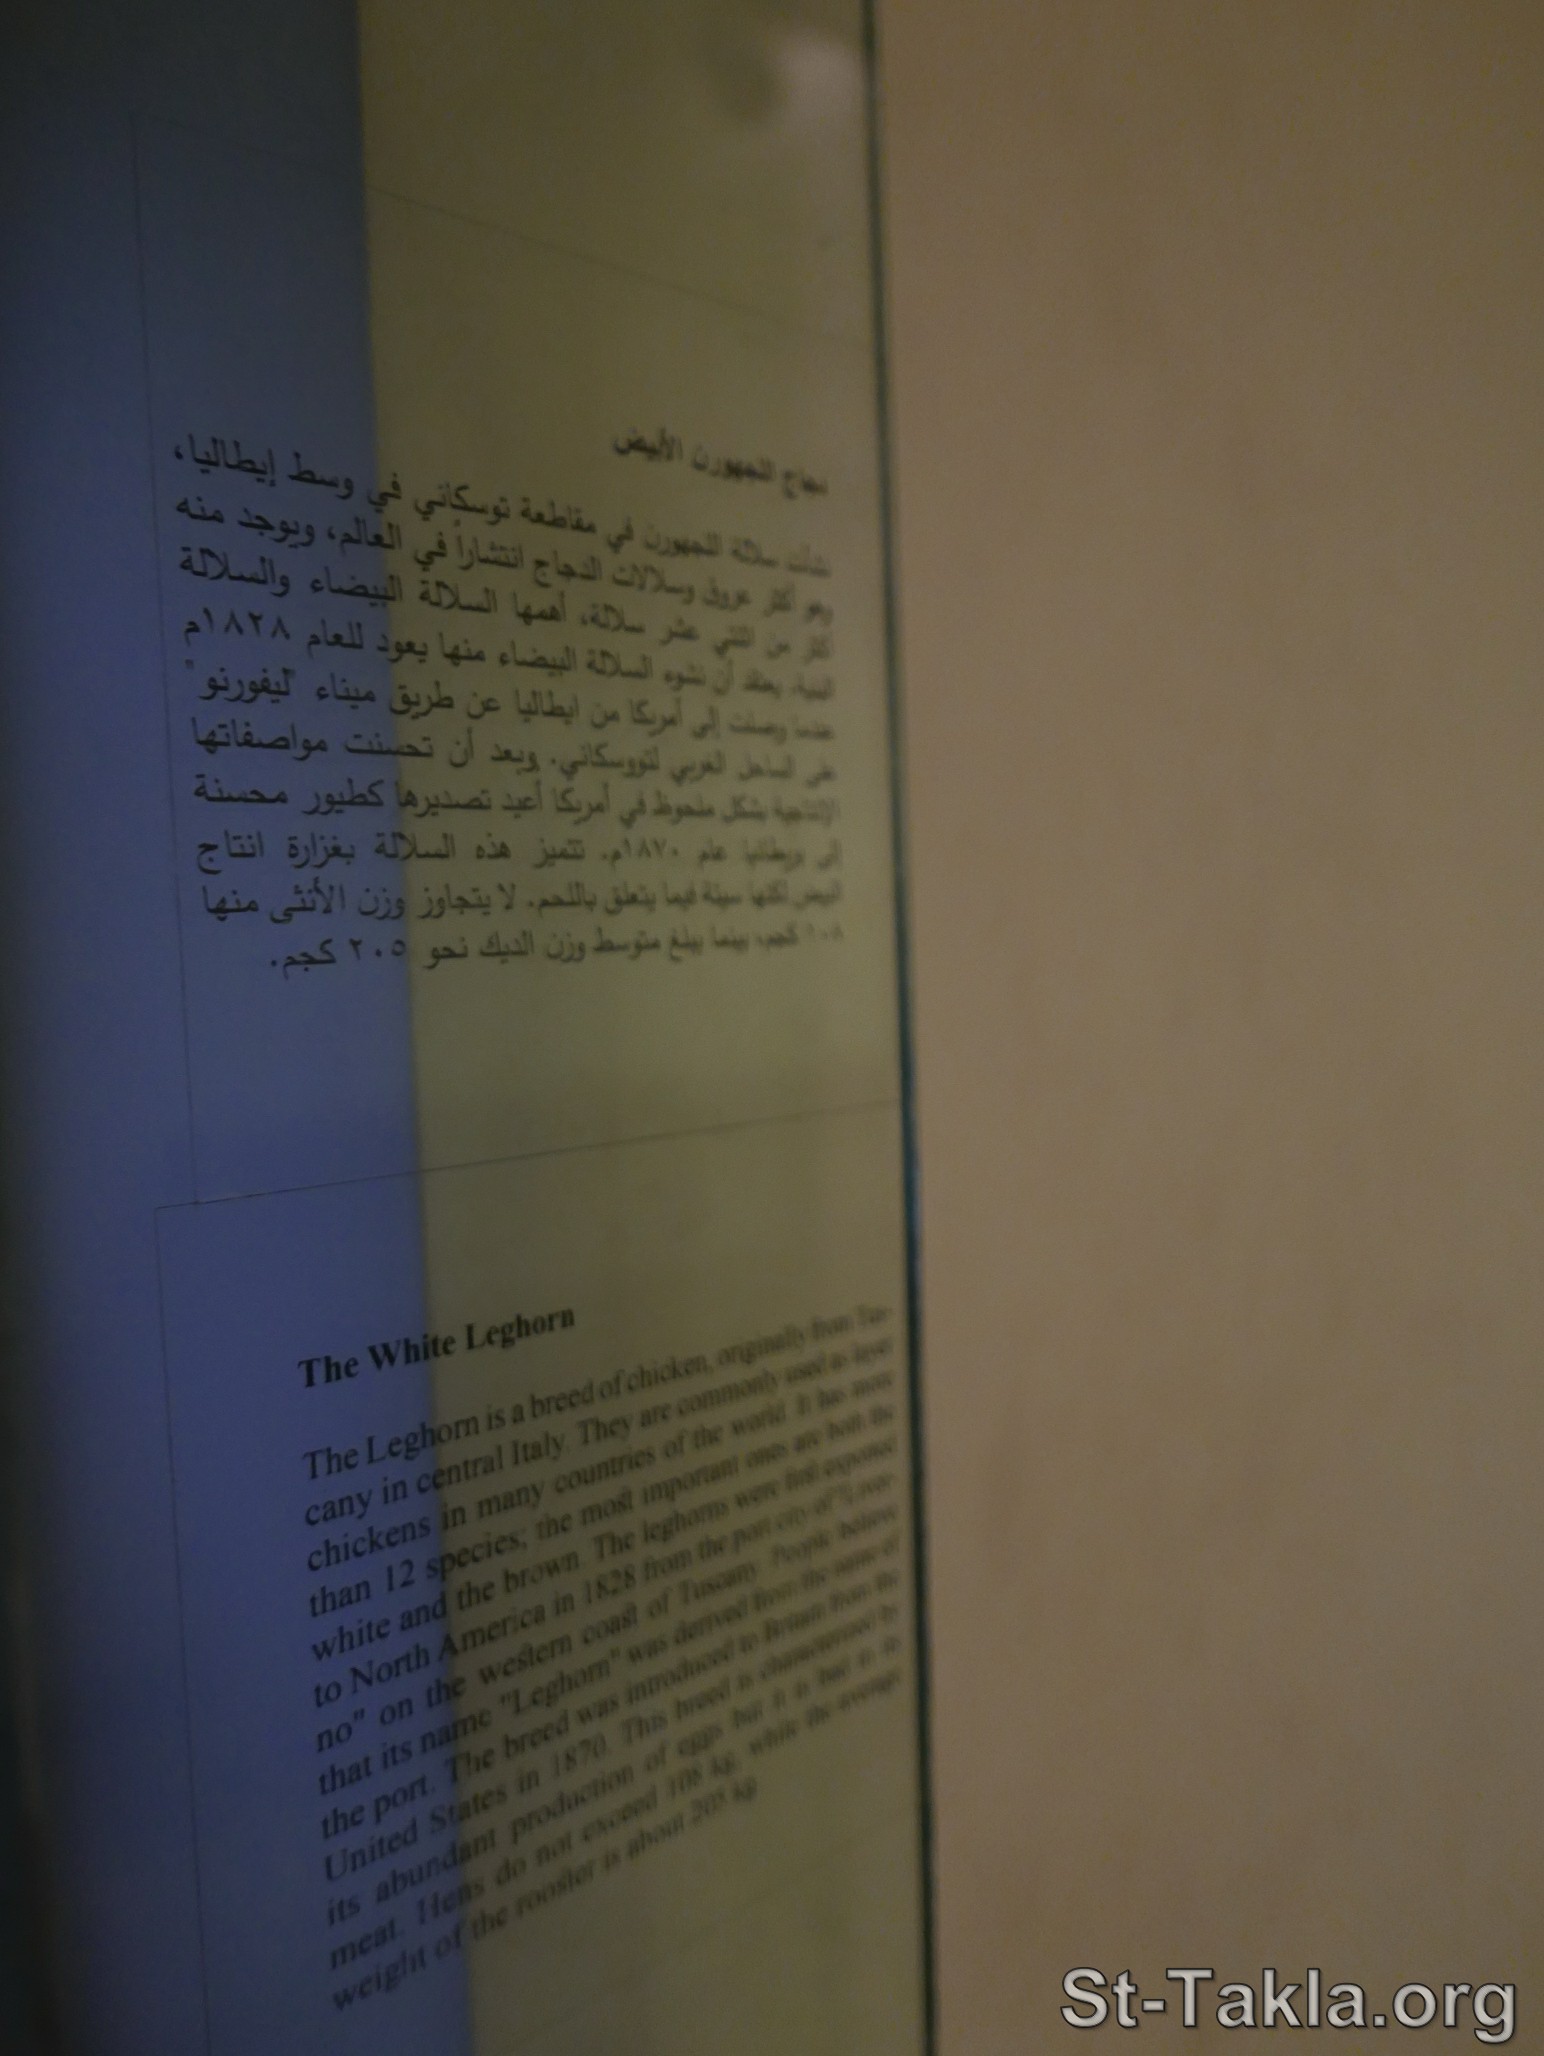 دجاج اللجهورن الأبيض
نشأت سلالة اللجهورن في مقاطعة توسكاني في وسط إيطاليا،
وهو أكثر عروق وسلالات الدجاج انتشاراً في العالم، ويوجد منه
أكثر من اثنتي عشر سلالة، أهمها السلالة البيضاء والسلالة
البنية. يعتقد أن نشوء السلالة البيضاء منها يعود للعام ١٨٢٨م
عندما وصلت إلى أمريكا من ايطاليا عن طريق ميناء "ليفورنو"
على الساحل الغربي لتووسكاني. وبعد أن تحسنت مواصفاتها
الإنتاجية بشكل ملحوظ في أمريكا أعيد تصديرها كطيور محسنة
إلى بريطانيا عام ١٨٧٠م. تتميز هذه السلالة بغزارة انتاج
البيض لكنها سيئة فيما يتعلق باللحم. لا يتجاوز وزن الأنثى منها
١٠٨ كجم، بينما يبلغ متوسط وزن الديك نحو ٢٠٥ كجم.
The White Leghorn
The Leghorn is a breed of chicken, originally from Tus-
cany in central Italy. They are commonly used as layer
chickens in many countries of the world. It has more
than 12 species; the most important ones are both the
white and the brown. The leghorns were first exported
to North America in 1828 from the port city of "Livor-
no" on the western coast of Tuscany. People believe
that its name "Leghorn" was derived from the name of
the port. The breed was introduced to Britain from the
United States in 1870. This breed is characterized by
its abundant production of eggs but it is bad in its
meat. Hens do not exceed 108 kg, while the average
weight of the rooster is about 205 kg
St-Takla.org